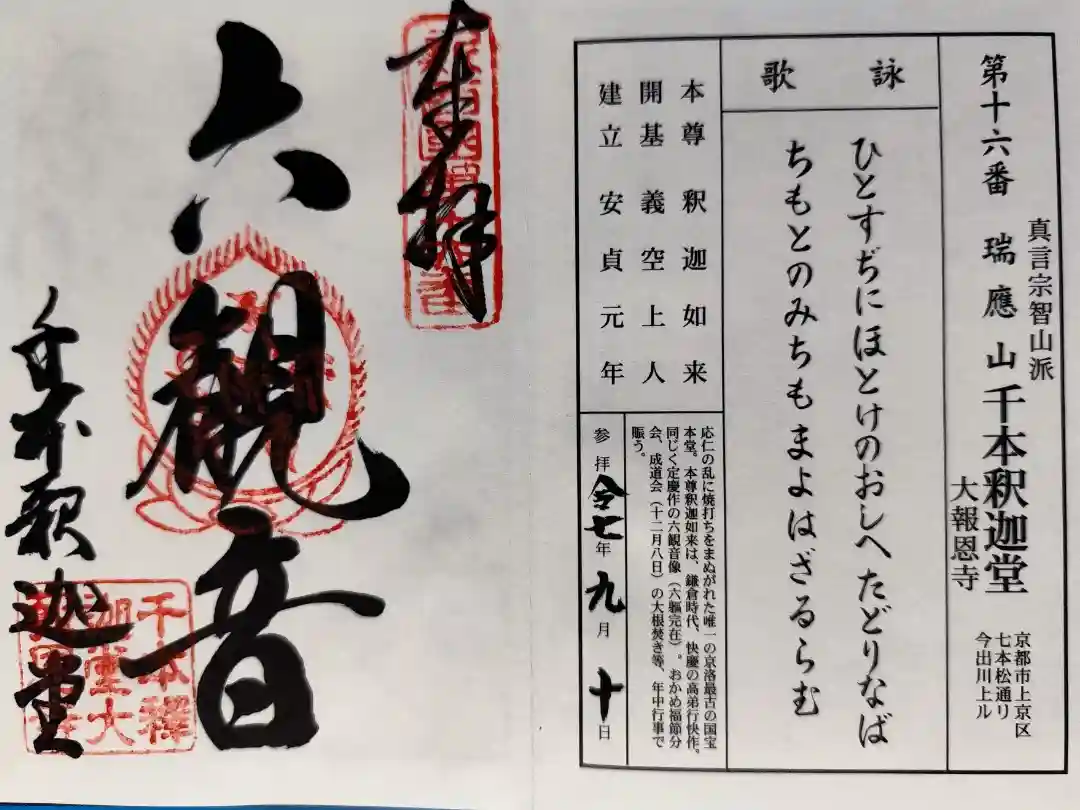 第十六番 瑞應山千本釈迦堂
真言宗智山派
大報恩寺
京都市上京区
七本松通り
今出川上ル
詠歌
ひとすぢにほとけのおしへたどりなば
ちもとのみちもまよはざるらむ
本尊 釈迦如来
開基 義空上人
建立 安貞元年
応仁の乱に焼打ちをまぬがれた唯一の京洛最古の国宝
本堂。本尊釈迦如来は、鎌倉時代、快慶の高弟行快作。
同じく定慶作の六観音像(六軀完在)。おかめ福節分
会、成道会(十二月八日)の大根焚き等、年中行事で
賑う。
参拝令七年九月十日
奉拝
六観音
千本釈迦堂
千本釋
迦堂大